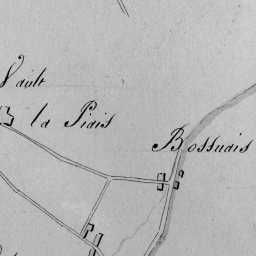 Vault
la Piais
Bossuais